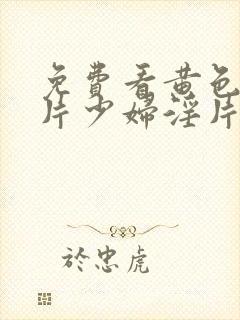 免費看黄色
片少婦淫片
於忠虎